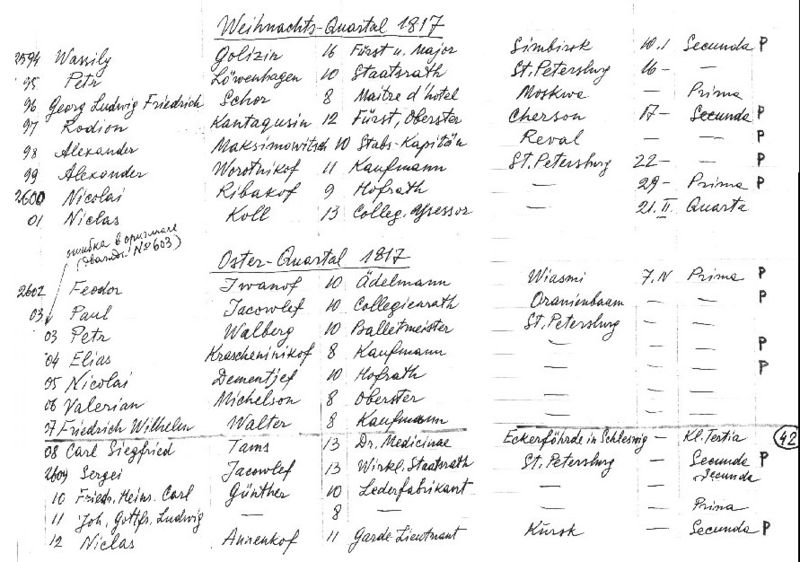 Weihnachts-Quartal 1817
2594 Wassily Golizin 16 Fürst u. Major Simbirsk 10.I Secunda P
95 Petr Löwenhagen 10 Staatsrath St. Petersburg 16 — —
96 Georg Ludwig Friedrich Schor 8 Maitre d'hotel Moskwa — Prima
97 Rodion Kantagusin 12 Fürst, Oberster Cherson 17 — Secunda P
98 Alexander Maksimowitsch 10 Stabs-Kapitän Reval — — P
99 Alexander Worotnikof 11 Kaufmann St. Petersburg 22 — — P
2600 Nicolai Ribakof 9 Hofrath — 29 — Prima P
01 Niclas Koll 13 Colleg. Assessor — 21.II. Quarta
ошибка в оригинале
(дважды № 603)
Oster-Quartal 1817
2602 Feodor Iwanof 10 Ädelmann Wiasmi 7.IV Prima P
03 Paul Jacowlef 10 Collegienrath Oranienbaum — — P
03 Petr Walberg 10 Balletmeister St. Petersburg — —
04 Elias Krascheninikof 8 Kaufmann — — — P
05 Nicolai Dementjef 10 Hofrath — — — P
06 Valerian Michelson 8 Oberster — — —
07 Friedrich Wilhelm Walter 8 Kaufmann — — —
08 Carl Siegfried Tams 13 Dr. Medicinae Eckerförde in Schleswig — Kl. Tertia 42
2609 Sergei Jacowlef 13 Wirkl. Staatsrath St. Petersburg — Secunda P
10 Friedr. Heinr. Carl Günther 10 Lederfabrikant — — Secunda
11 Joh. Gottfr. Ludwig — 8 — — — Prima
12 Niclas Annenkof 11 Garde Lieutnant Kursk — Secunda P